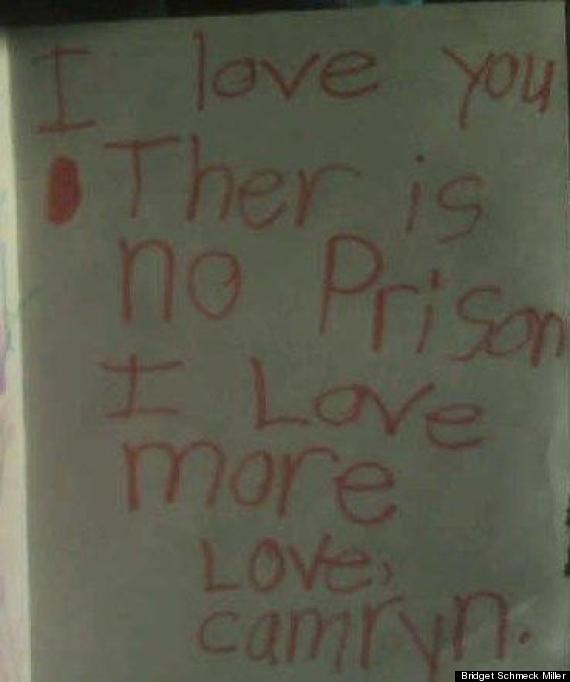 I love you
Ther is
no Prison
I Love
more
Love,
camryn.
Bridget Schmeck Miller